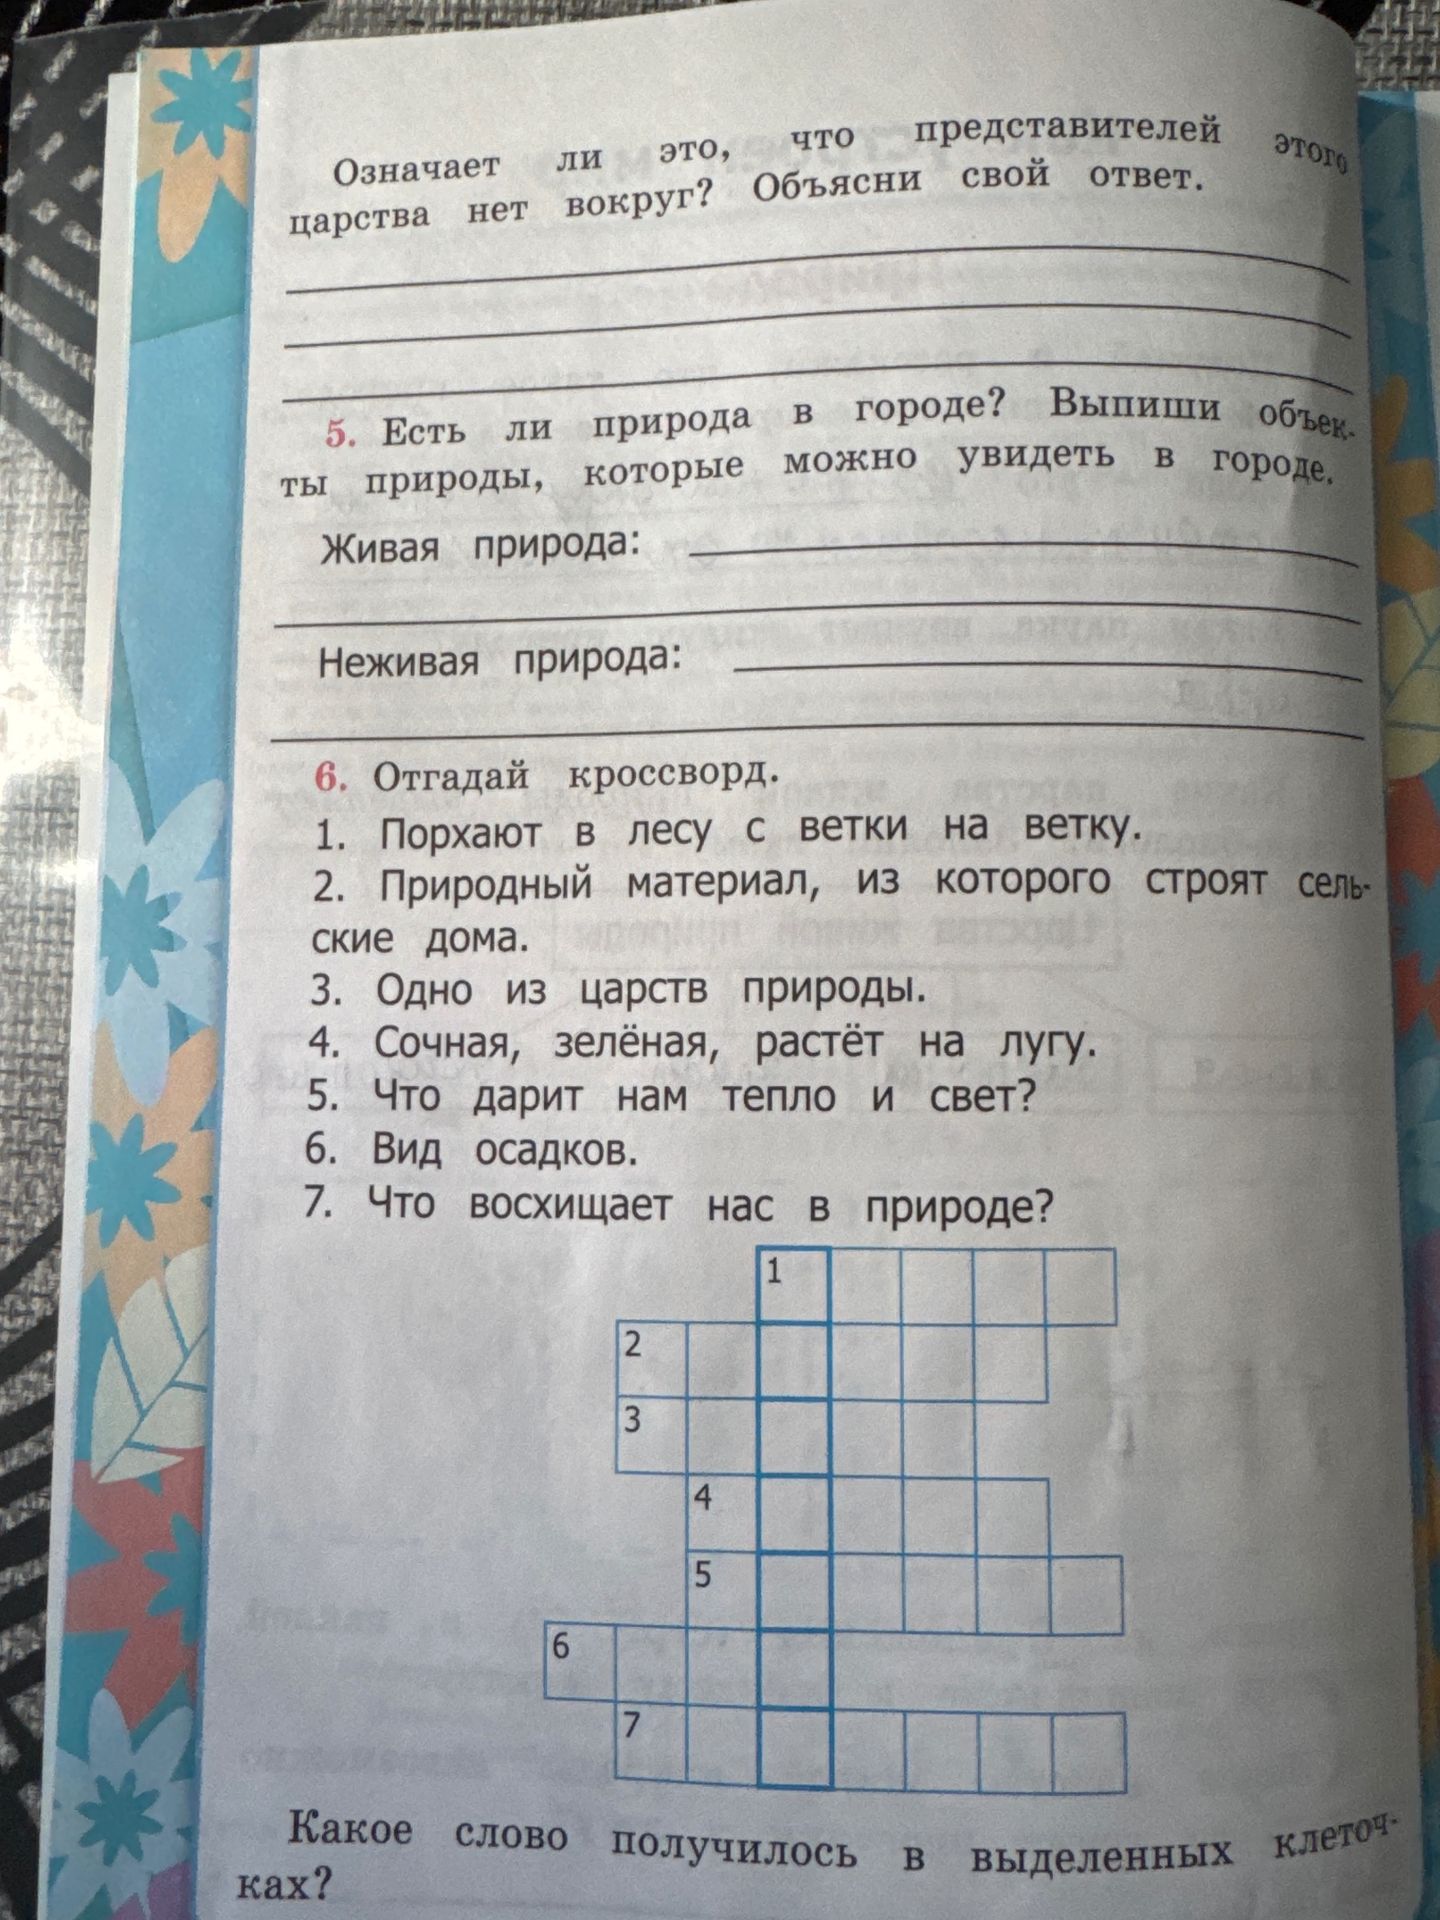 Означает ли это, что представителей этого
царства нет вокруг? Объясни свой ответ.
5. Есть ли природа в городе? Выпиши объек-
ты природы, которые можно увидеть в городе.
Живая природа:
Неживая природа:
6. Отгадай кроссворд.
1. Порхают в лесу с ветки на ветку.
2. Природный материал, из которого строят сель-
ские дома.
3. Одно из царств природы.
4. Сочная, зелёная, растёт на лугу.
5. Что дарит нам тепло и свет?
6. Вид осадков.
7. Что восхищает нас в природе?
1
2
3
4
5
6
7
Какое слово получилось в выделенных клеточ-
ках?